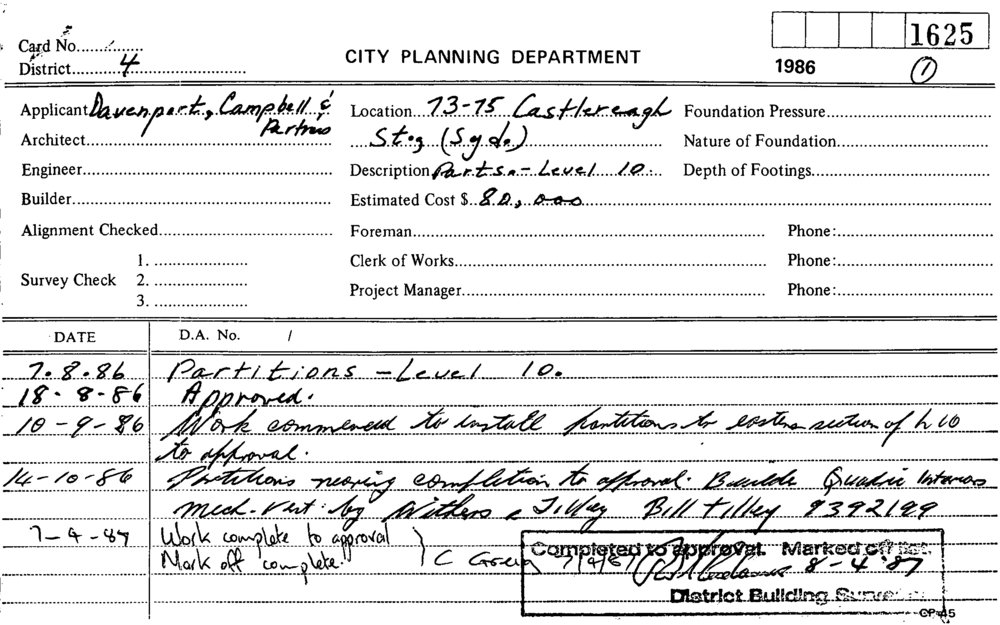 Card No.
District 4
CITY PLANNING DEPARTMENT
1625
1986
1
Applicant Davenport, Campbell &
Partners
Location 73-75 Castlereagh
St., (Syd.)
Foundation Pressure
Architect
Nature of Foundation
Engineer
Description Parts. - Level 10.
Depth of Footings
Builder
Estimated Cost $ 80,000
Alignment Checked
Foreman
Phone:
Survey Check
1.
2.
3.
Clerk of Works
Phone:
Project Manager
Phone:
DATE
D.A. No. /
7.8.86 Partitions - Level 10.
18-8-86 Approved.
10-9-86 Work commenced to install partitions to eastern section of L 10
to approval.
14-10-86 Partitions nearing completion to approval. Interiors
Mech. Vent. by Withers & Bill Tilley 9392199
7-4-87 Work complete to approval
Mark off complete.
C 7/4/87
Completed to approval. Marked off list.
8-4-87
District Building
CP 45